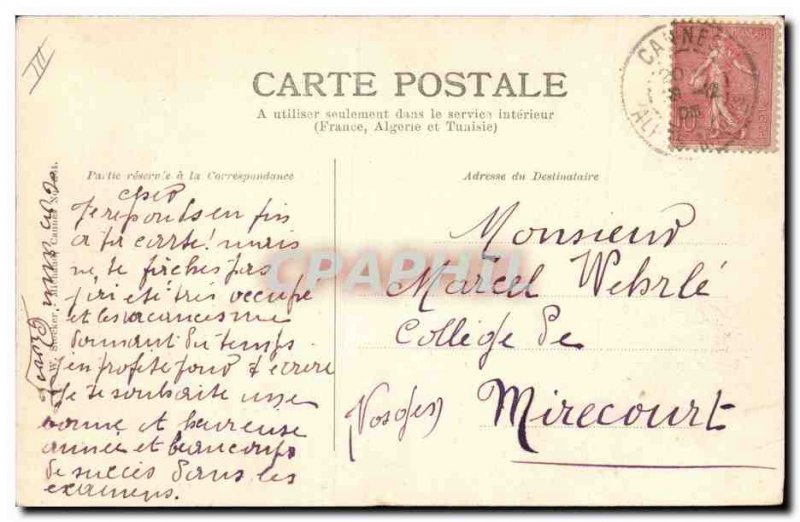 III
CARTE POSTALE
A utiliser seulement dans le service intérieur
(France, Algerie et Tunisie)
CANNES
10
Partie réservée à la Correspondance
Adresse du Destinataire
cher
Je réponds en fin
a ta carte! mais
ne te fâches pas
j'ai été très occupé
et les vacances me
donnant du temps
j'en profite pour t'écrire
Je te souhaite une
bonne et heureuse
année et beaucoup
de succès dans les
examens.
Monsieur
Marcel Wehrlé
Collège de
Mirecourt
(Vosges)
CPAPHIL